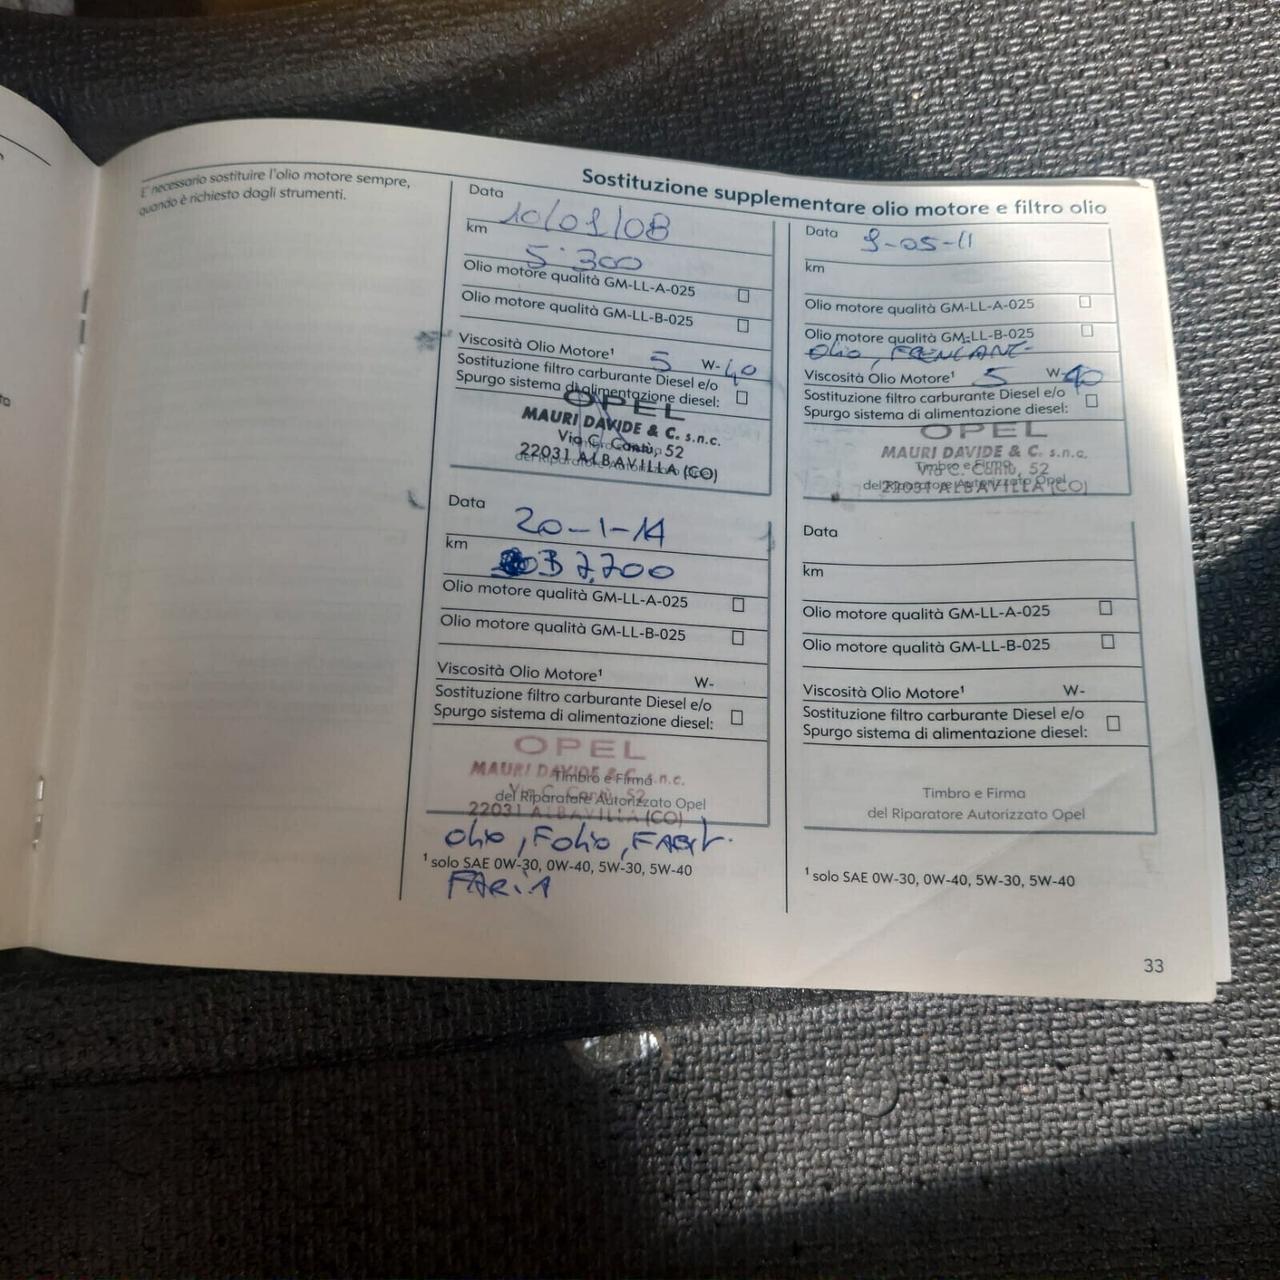 E' necessario sostituire l'olio motore sempre,
quando è richiesto dagli strumenti.
Sostituzione supplementare olio motore e filtro olio
Data 10/01/08
km 5.300
Olio motore qualità GM-LL-A-025
Olio motore qualità GM-LL-B-025
Viscosità Olio Motore¹ 5 W-40
Sostituzione filtro carburante Diesel e/o
Spurgo sistema di alimentazione diesel:
OPEL
MAURI DAVIDE & C. s.n.c.
Via C. Cantù, 52
22031 ALBAVILLA (CO)
del Riparatore Autorizzato Opel
Data 20-1-14
km 37.700
Olio motore qualità GM-LL-A-025
Olio motore qualità GM-LL-B-025
Viscosità Olio Motore¹ W-
Sostituzione filtro carburante Diesel e/o
Spurgo sistema di alimentazione diesel:
OPEL
MAURI DAVIDE & C. s.n.c.
Timbro e Firma
Via C. Cantù, 52
del Riparatore Autorizzato Opel
22031 ALBAVILLA (CO)
Olio, Folio,
¹ solo SAE 0W-30, 0W-40, 5W-30, 5W-40
FARIA
Data 9-05-11
km
Olio motore qualità GM-LL-A-025
Olio motore qualità GM-LL-B-025
Olio,
Viscosità Olio Motore¹ 5 W-40
Sostituzione filtro carburante Diesel e/o
Spurgo sistema di alimentazione diesel:
OPEL
MAURI DAVIDE & C. s.n.c.
Timbro e Firma
Via C. Cantù, 52
del Riparatore Autorizzato Opel
22031 ALBAVILLA (CO)
Data
km
Olio motore qualità GM-LL-A-025
Olio motore qualità GM-LL-B-025
Viscosità Olio Motore¹ W-
Sostituzione filtro carburante Diesel e/o
Spurgo sistema di alimentazione diesel:
Timbro e Firma
del Riparatore Autorizzato Opel
¹ solo SAE 0W-30, 0W-40, 5W-30, 5W-40
33